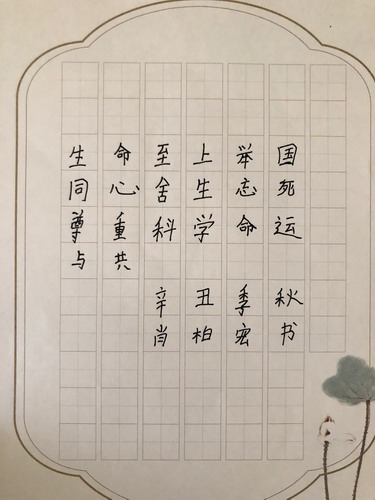 生命至上举国
同心舍生忘死
尊重科学命运
与共
辛丑季秋
肖柏宏书